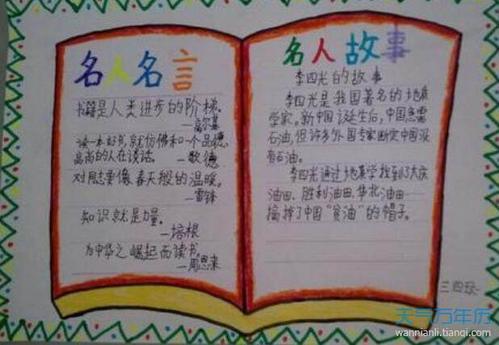 名人名言
书籍是人类进步的阶梯。
—高尔基
读一本好书,就仿佛和一个品德
高尚的人在谈话。 —歌德
对同志要像春天般的温暖。
—雷锋
知识就是力量。
—培根
为中华之崛起而读书。
—周恩来
名人故事
李四光的故事
李四光是我国著名的地质
学家。新中国诞生后,中国急需
石油,但许多外国专家断定中国没
有石油。
李四光通过地质学找到了大庆
油田、胜利油田、华北油田
摘掉了中国“贫油”的帽子。
三四班
天气万年历
wannianli.tianqi.com